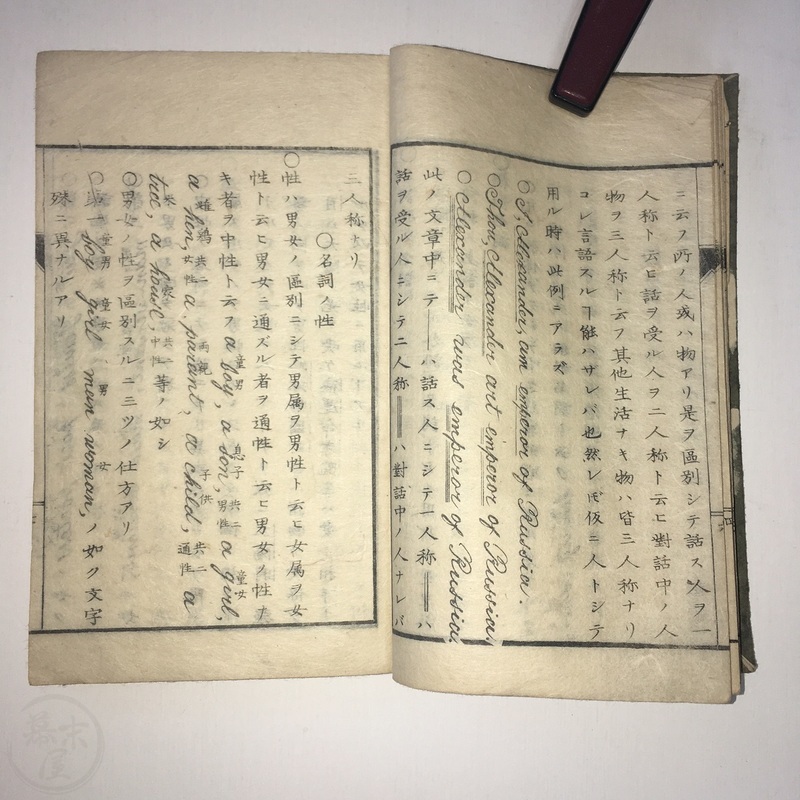 ニ云フ所ノ人或ハ物アリ是ヲ區別シテ話ス人ヲ一
人称ト云ヒ話ヲ受ル人ヲ二人称ト云ヒ對話中ノ人
物ヲ三人称ト云フ其他生活ナキ物ハ皆三人称ナリ
コレ言語スルヿ能ハサレバ也然レ𪜈仮ニ人トシテ
用ル時ハ此例ニアラズ
○I, Alexander, am emperor of Russia.
○Thou, Alexander art emperor of Russia.
○Alexander was emperor of Russia.
此ノ文章中ニテ ハ話ス人ニシテ一人称 ハ
話ヲ受ル人ニシテ二人称 ハ對話中ノ人ナレバ
三人称ナリ
○名詞ノ性
○性ハ男女ノ區別ニシテ男属ヲ男性ト云ヒ女属ヲ女
性ト云ヒ男女ニ通ズル者ヲ通性ト云ヒ男女ノ性ナ
キ者ヲ中性ト云フ a boy, a son, a girl,
童男 息子 共ニ男性 童女
a hen, a parent, a child, a
雌鶏 共ニ女性 両親 子供 共ニ通性
tree, a house, 等ノ如シ
家 共ニ中性
○男女ノ性ヲ區別スルニ三ツノ仕方アリ
○第一 boy girl man woman, ノ如ク文字
童男 童女 男 女
殊ニ異ナルアリ
幕末屋